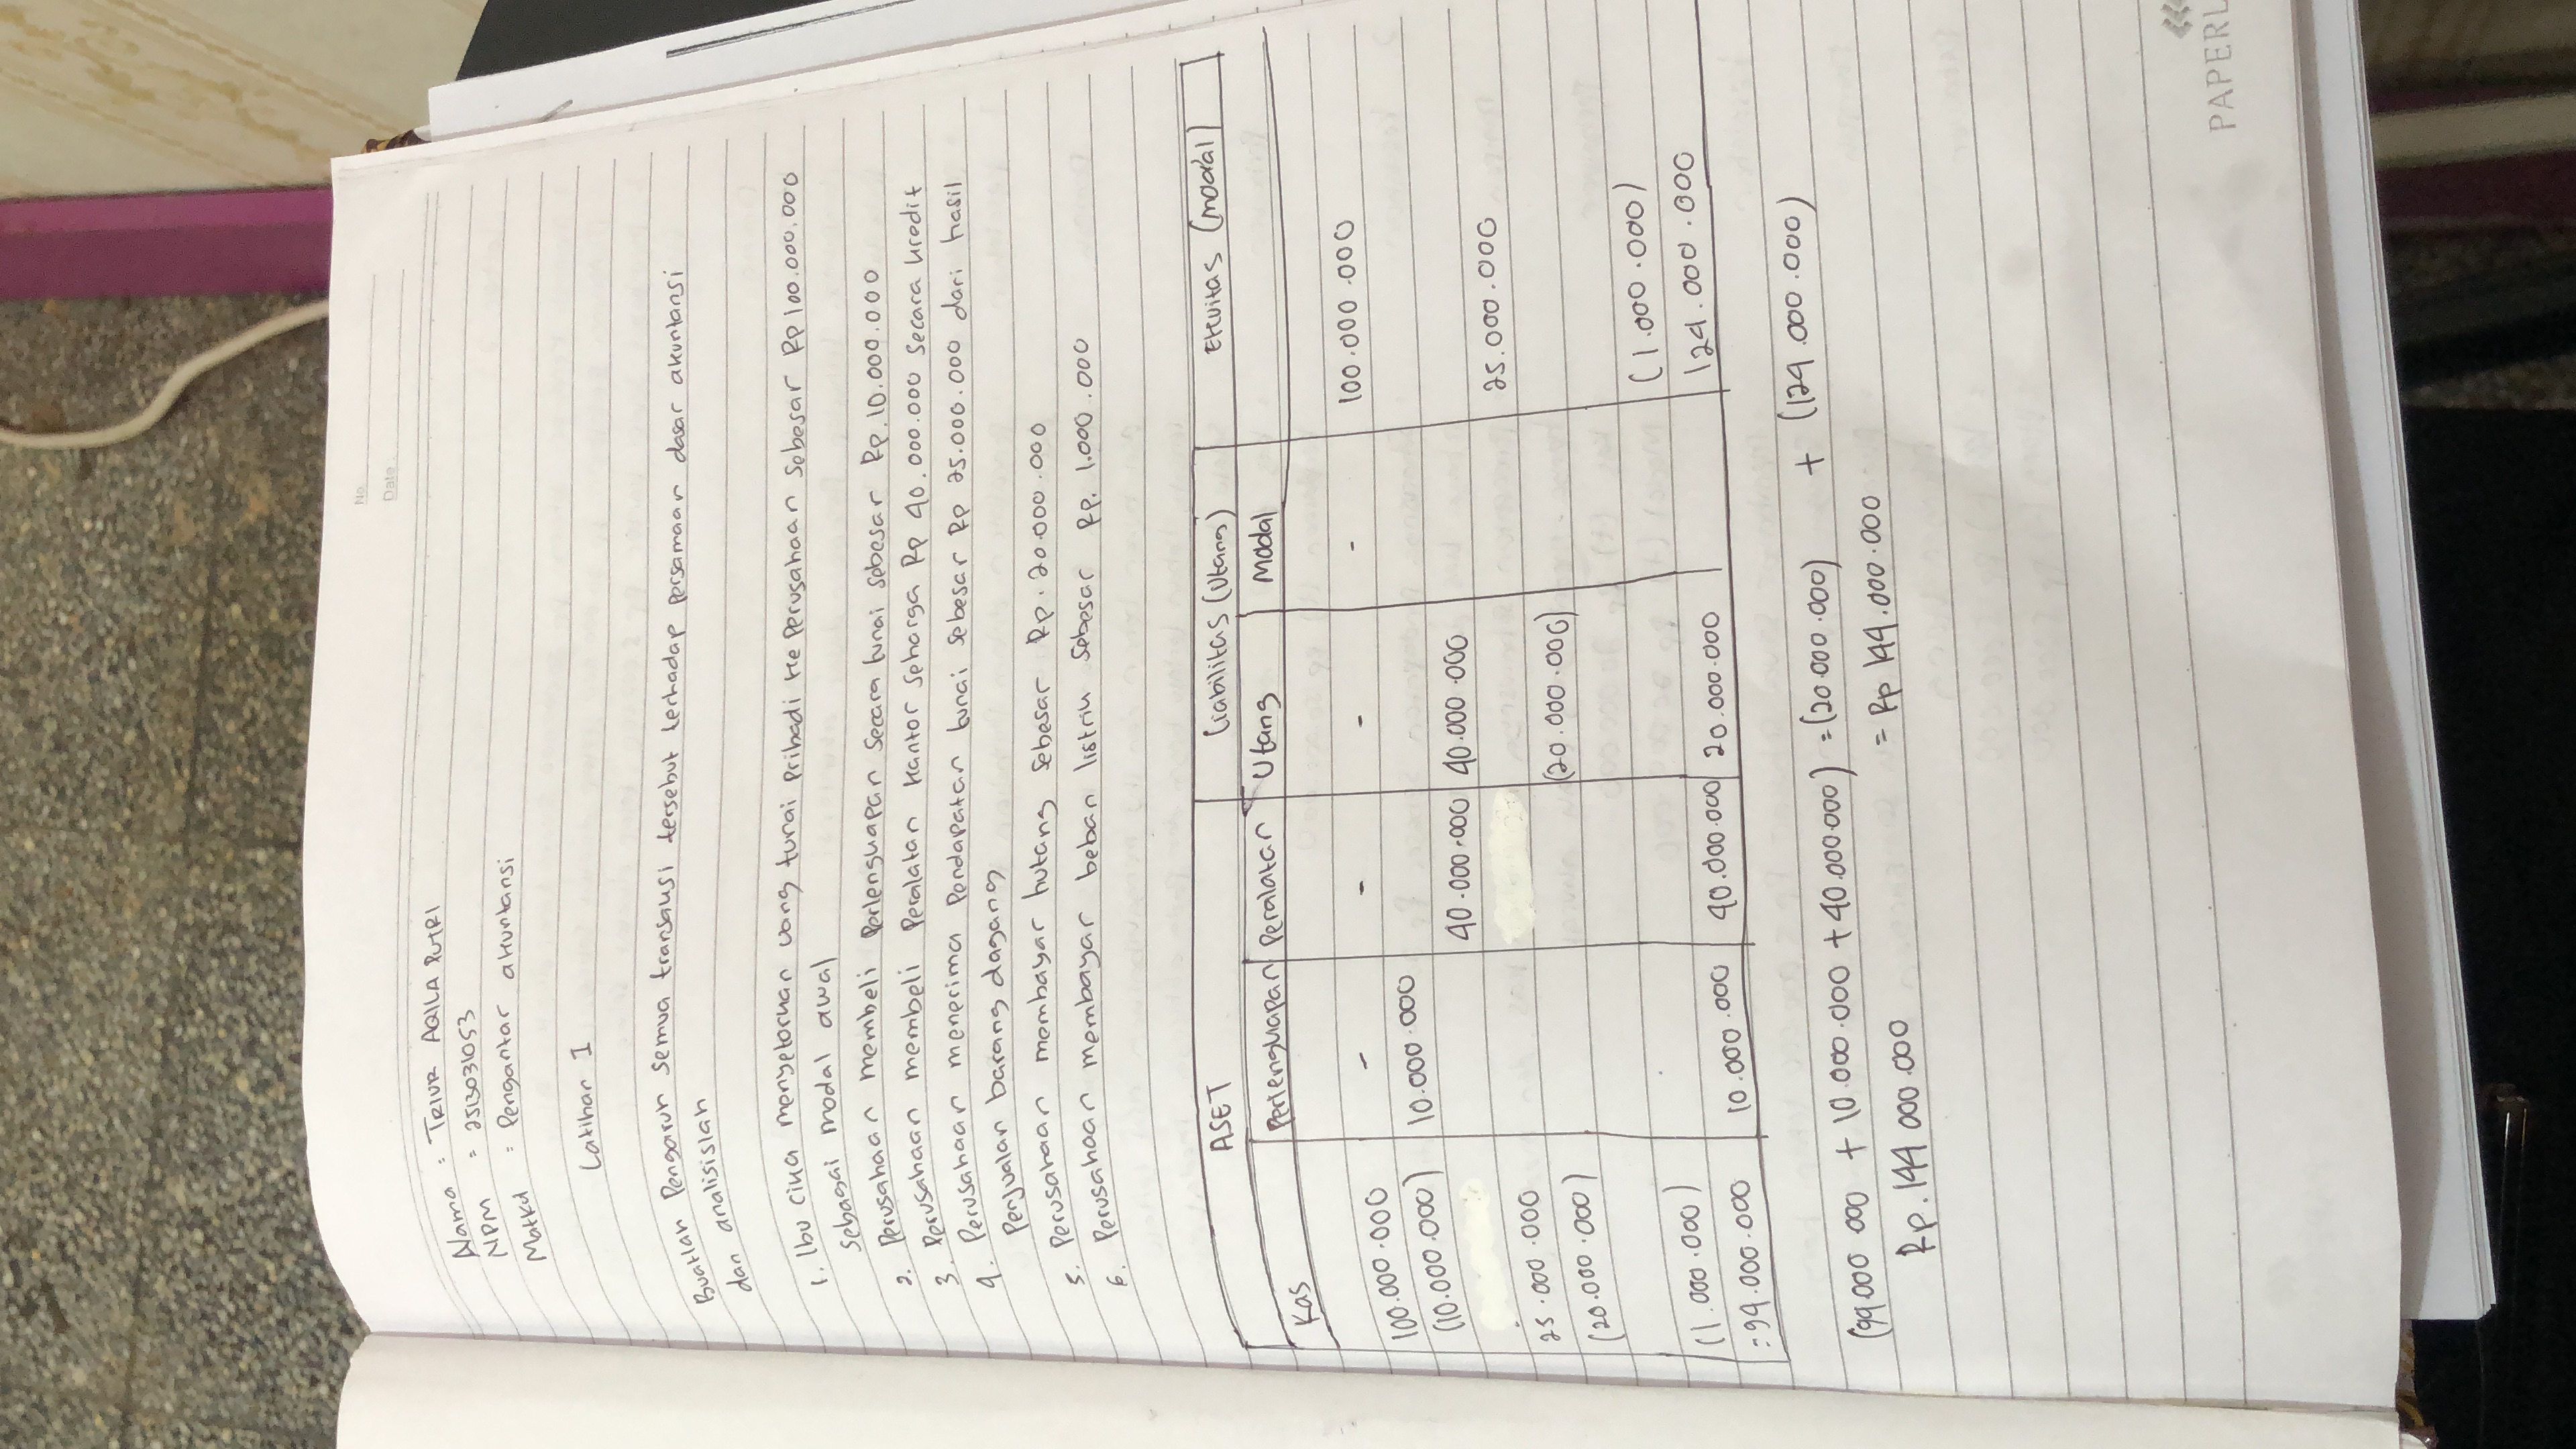 No.
Date.
Nama : TRIUR AQILA PUTRI
NPM = 2513031053
Matkul : Pengantar akuntansi
Latihan 1
Buatlah Pengaruh semua transaksi tersebut terhadap persamaan dasar akuntansi
dan analisislah
1. Ibu cika menyetorkan uang tunai Pribadi ke Perusahaan sebesar Rp 100.000.000
sebagai modal awal
2. Perusahaan membeli Perlengkapan secara tunai sebesar Rp. 10.000.000
3. Perusahaan membeli Peralatan kantor seharga Rp 40.000.000 secara kredit
4. Perusahaan menerima Pendapatan tunai sebesar Rp 25.000.000 dari hasil
Penjualan barang dagang
5. Perusahaan membayar hutang sebesar Rp. 20.000.000
6. Perusahaan membayar beban listrik sebesar Rp. 1.000.000
ASET Liabilitas (Utang) Ekuitas (modal)
Kas Perlengkapan Peralatan Utang Modal
100.000.000 - - - - 100.000.000
(10.000.000) 10.000.000
40.000.000 40.000.000
25.000.000 25.000.000
(20.000.000) (20.000.000)
(1.000.000) (1.000.000)
= 94.000.000 10.000.000 40.000.000 20.000.000 124.000.000
(94.000.000 + 10.000.000 + 40.000.000) = (20.000.000) + (124.000.000)
Rp. 144.000.000 = Rp 144.000.000